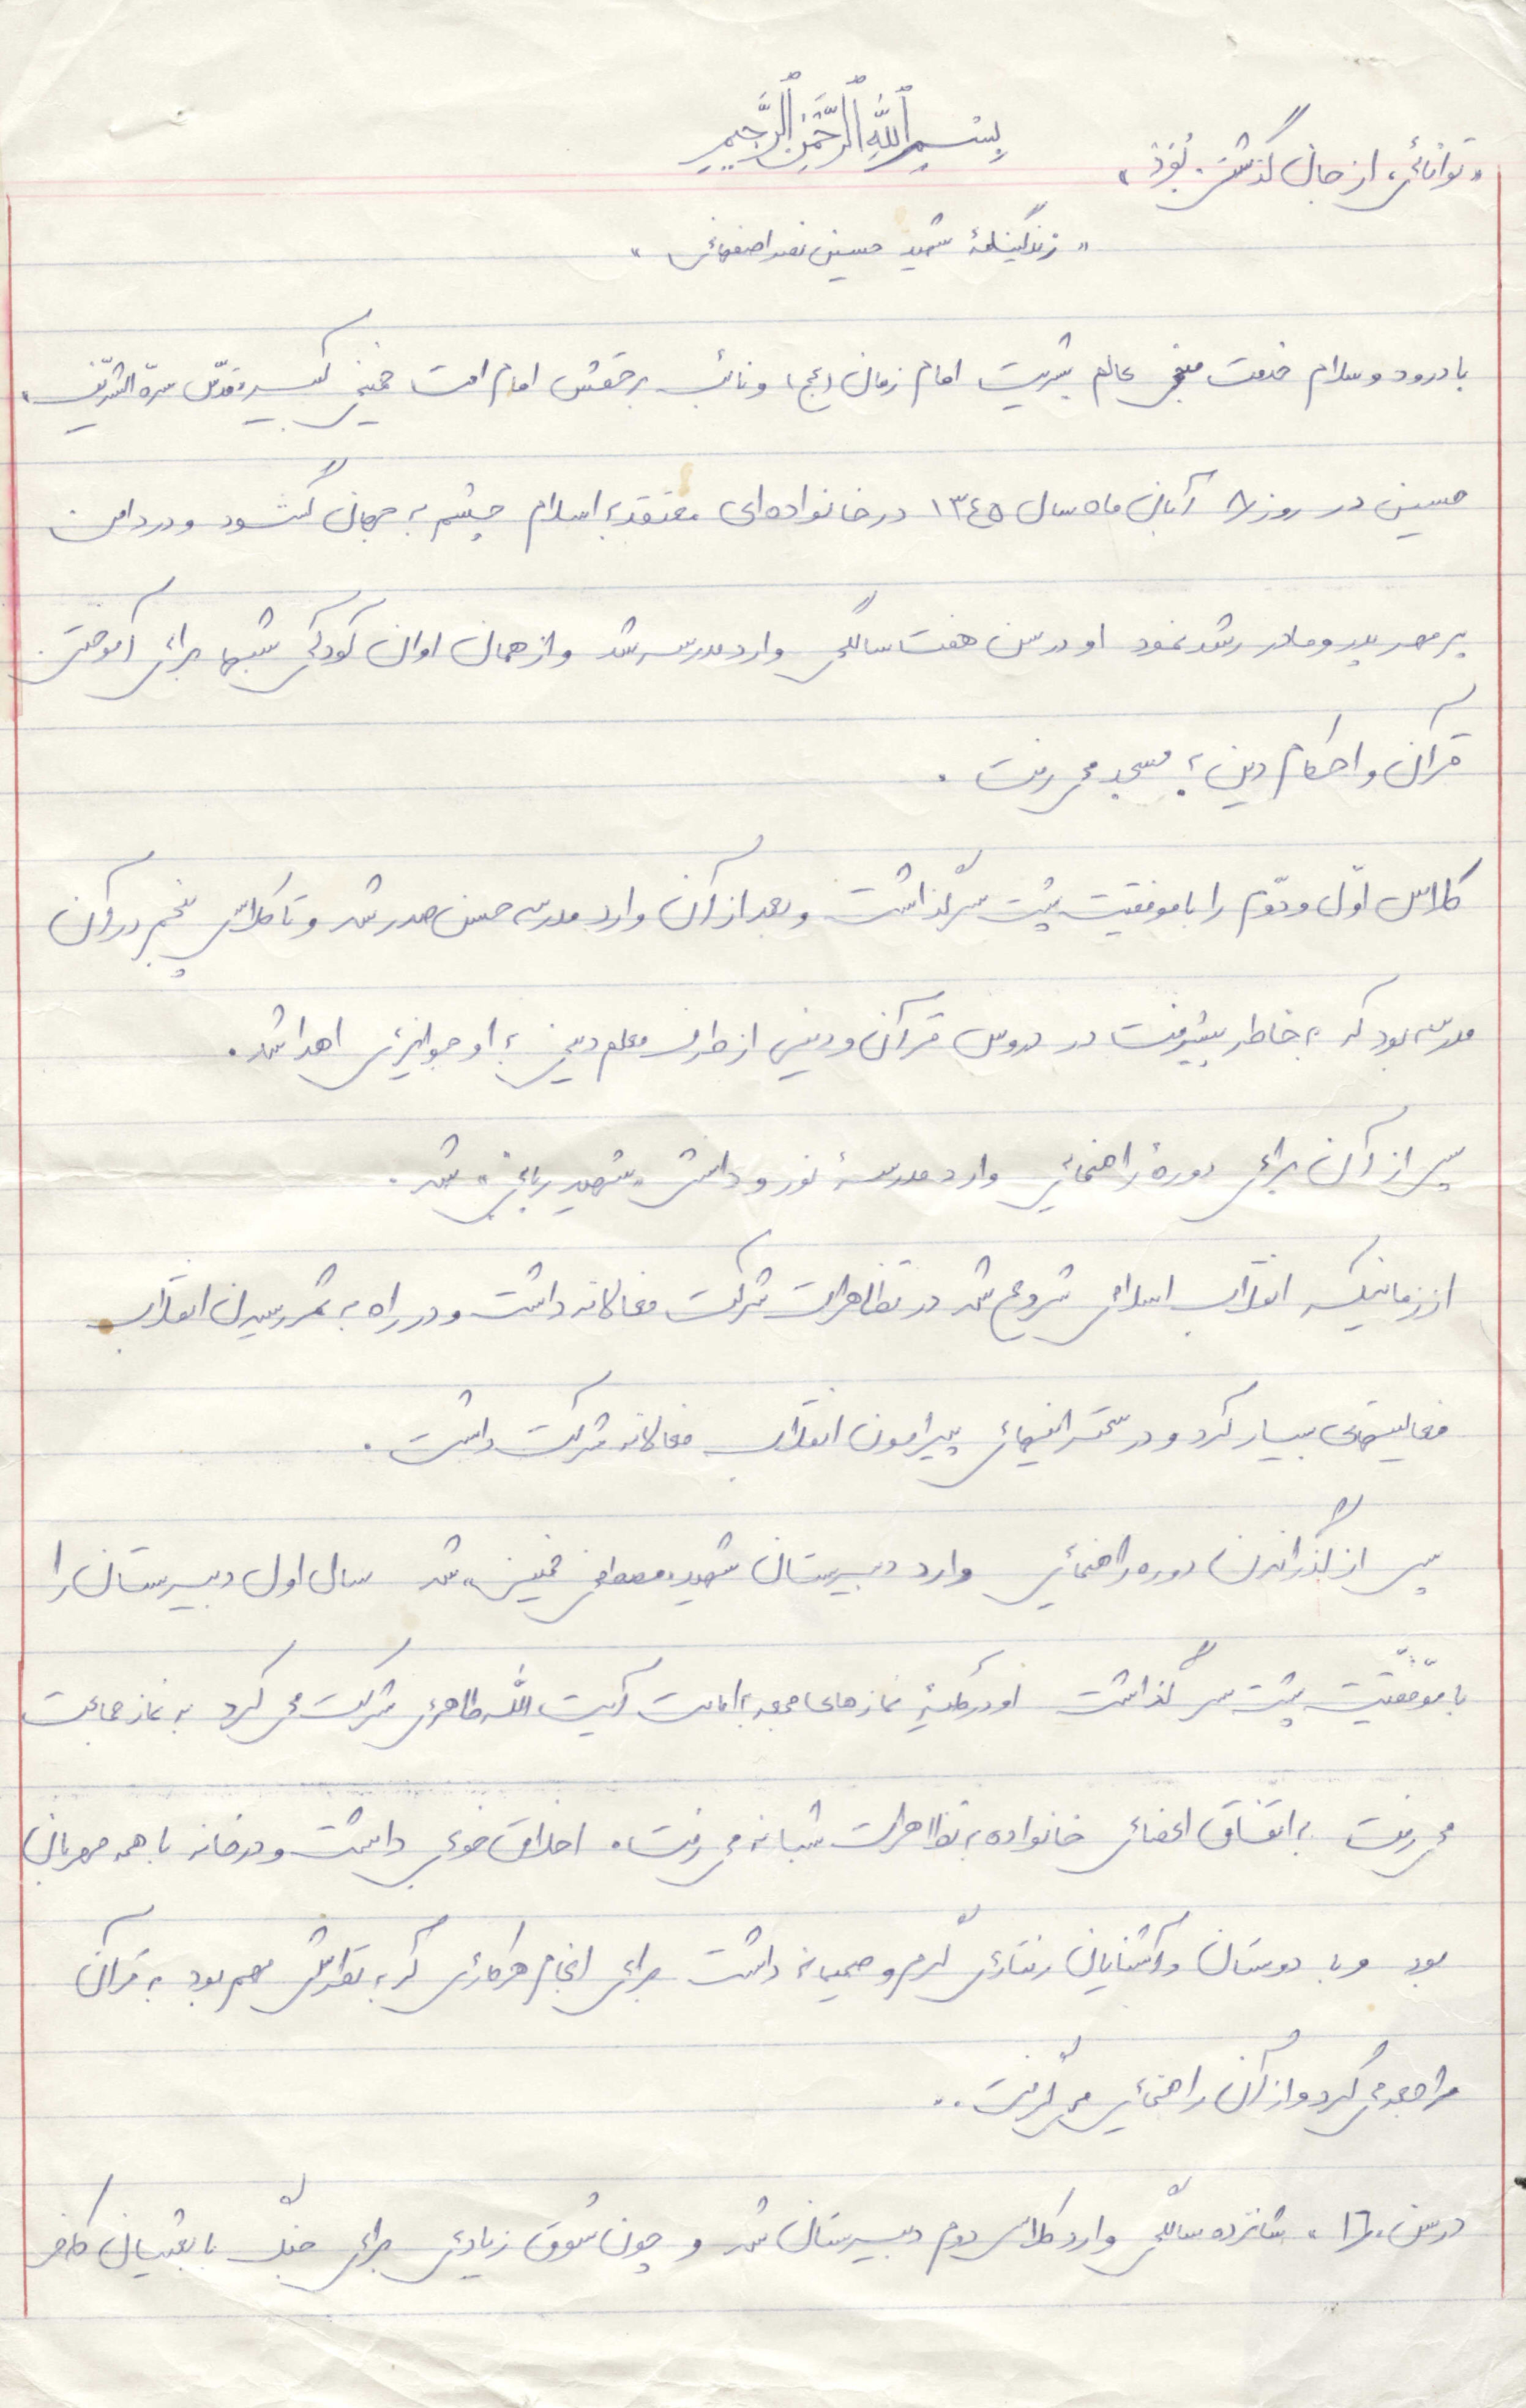 بِسْمِ اللَّهِ الرَّحْمَنِ الرَّحِيمِ
«توانائی، از جان گذشتن نفرد»
«زندگینامهٔ شهید حسین نصر اصفهانی»
با درود و سلام خدمت منجی عالم بشریت امام زمان (عج) و نائب برحقش امام امت خمینی کبیر «قدّس سرّه الشریف»
حسین در روز ۸ آبان ماه سال ۱۳۴۵ در خانواده‌ای معتقد به اسلام چشم به جهان گشود و در دامن
پر مهر پدر و مادر رشد نمود او در سن هفت سالگی وارد مدرسه شد و از همان اوان کودکی شبها برای آموختن
قرآن و احکام دین به مسجد می رفت .
کلاس اوّل و دوّم را با موفقیت پشت سر گذاشت و بعد از آن وارد مدرسه حسن صدر شد و تا کلاس پنجم در آن
مدرسه بود که به خاطر پیشرفت در دروس قرآن و دینی از طرف معلم دینی به او جوایزی اهدا شد .
پس از آن برای دورهٔ راهنمائی وارد مدرسهٔ نور و دانش «شهید ربانی» شد .
از زمانیکه انقلاب اسلامی شروع شد در تظاهرات شرکت فعالانه داشت و در راه به ثمر رسیدن انقلاب
فعالیتهای بسیار کرد و در سخنرانیهای پیرامون انقلاب فعالانه شرکت داشت .
پس از گذراندن دوره راهنمائی وارد دبیرستان شهید «مصطفی خمینی» شد سال اول دبیرستان را
با موّفقّیت پشت سر گذاشت او در کلیهٔ نمازهای جمعه به امامت آیت اللّه طاهری شرکت می کرد به نماز جماعت
می رفت به اتفاق اعضای خانواده به تظاهرات شبانه می رفت . اخلاق خوبی داشت و در خانه با همه مهربان
بود و با دوستان و آشنایان رفتاری گرم و صمیمانه داشت برای انجام هر کاری که به نظرش مهم بود به قرآن
مراجعه می کرد و از آن راهنمائی می گرفت . .
در سن «۱۶» شانزده سالگی وارد کلاس دوم دبیرستان شد و چون شوق زیادی برای جنگ با بعثیان کافر